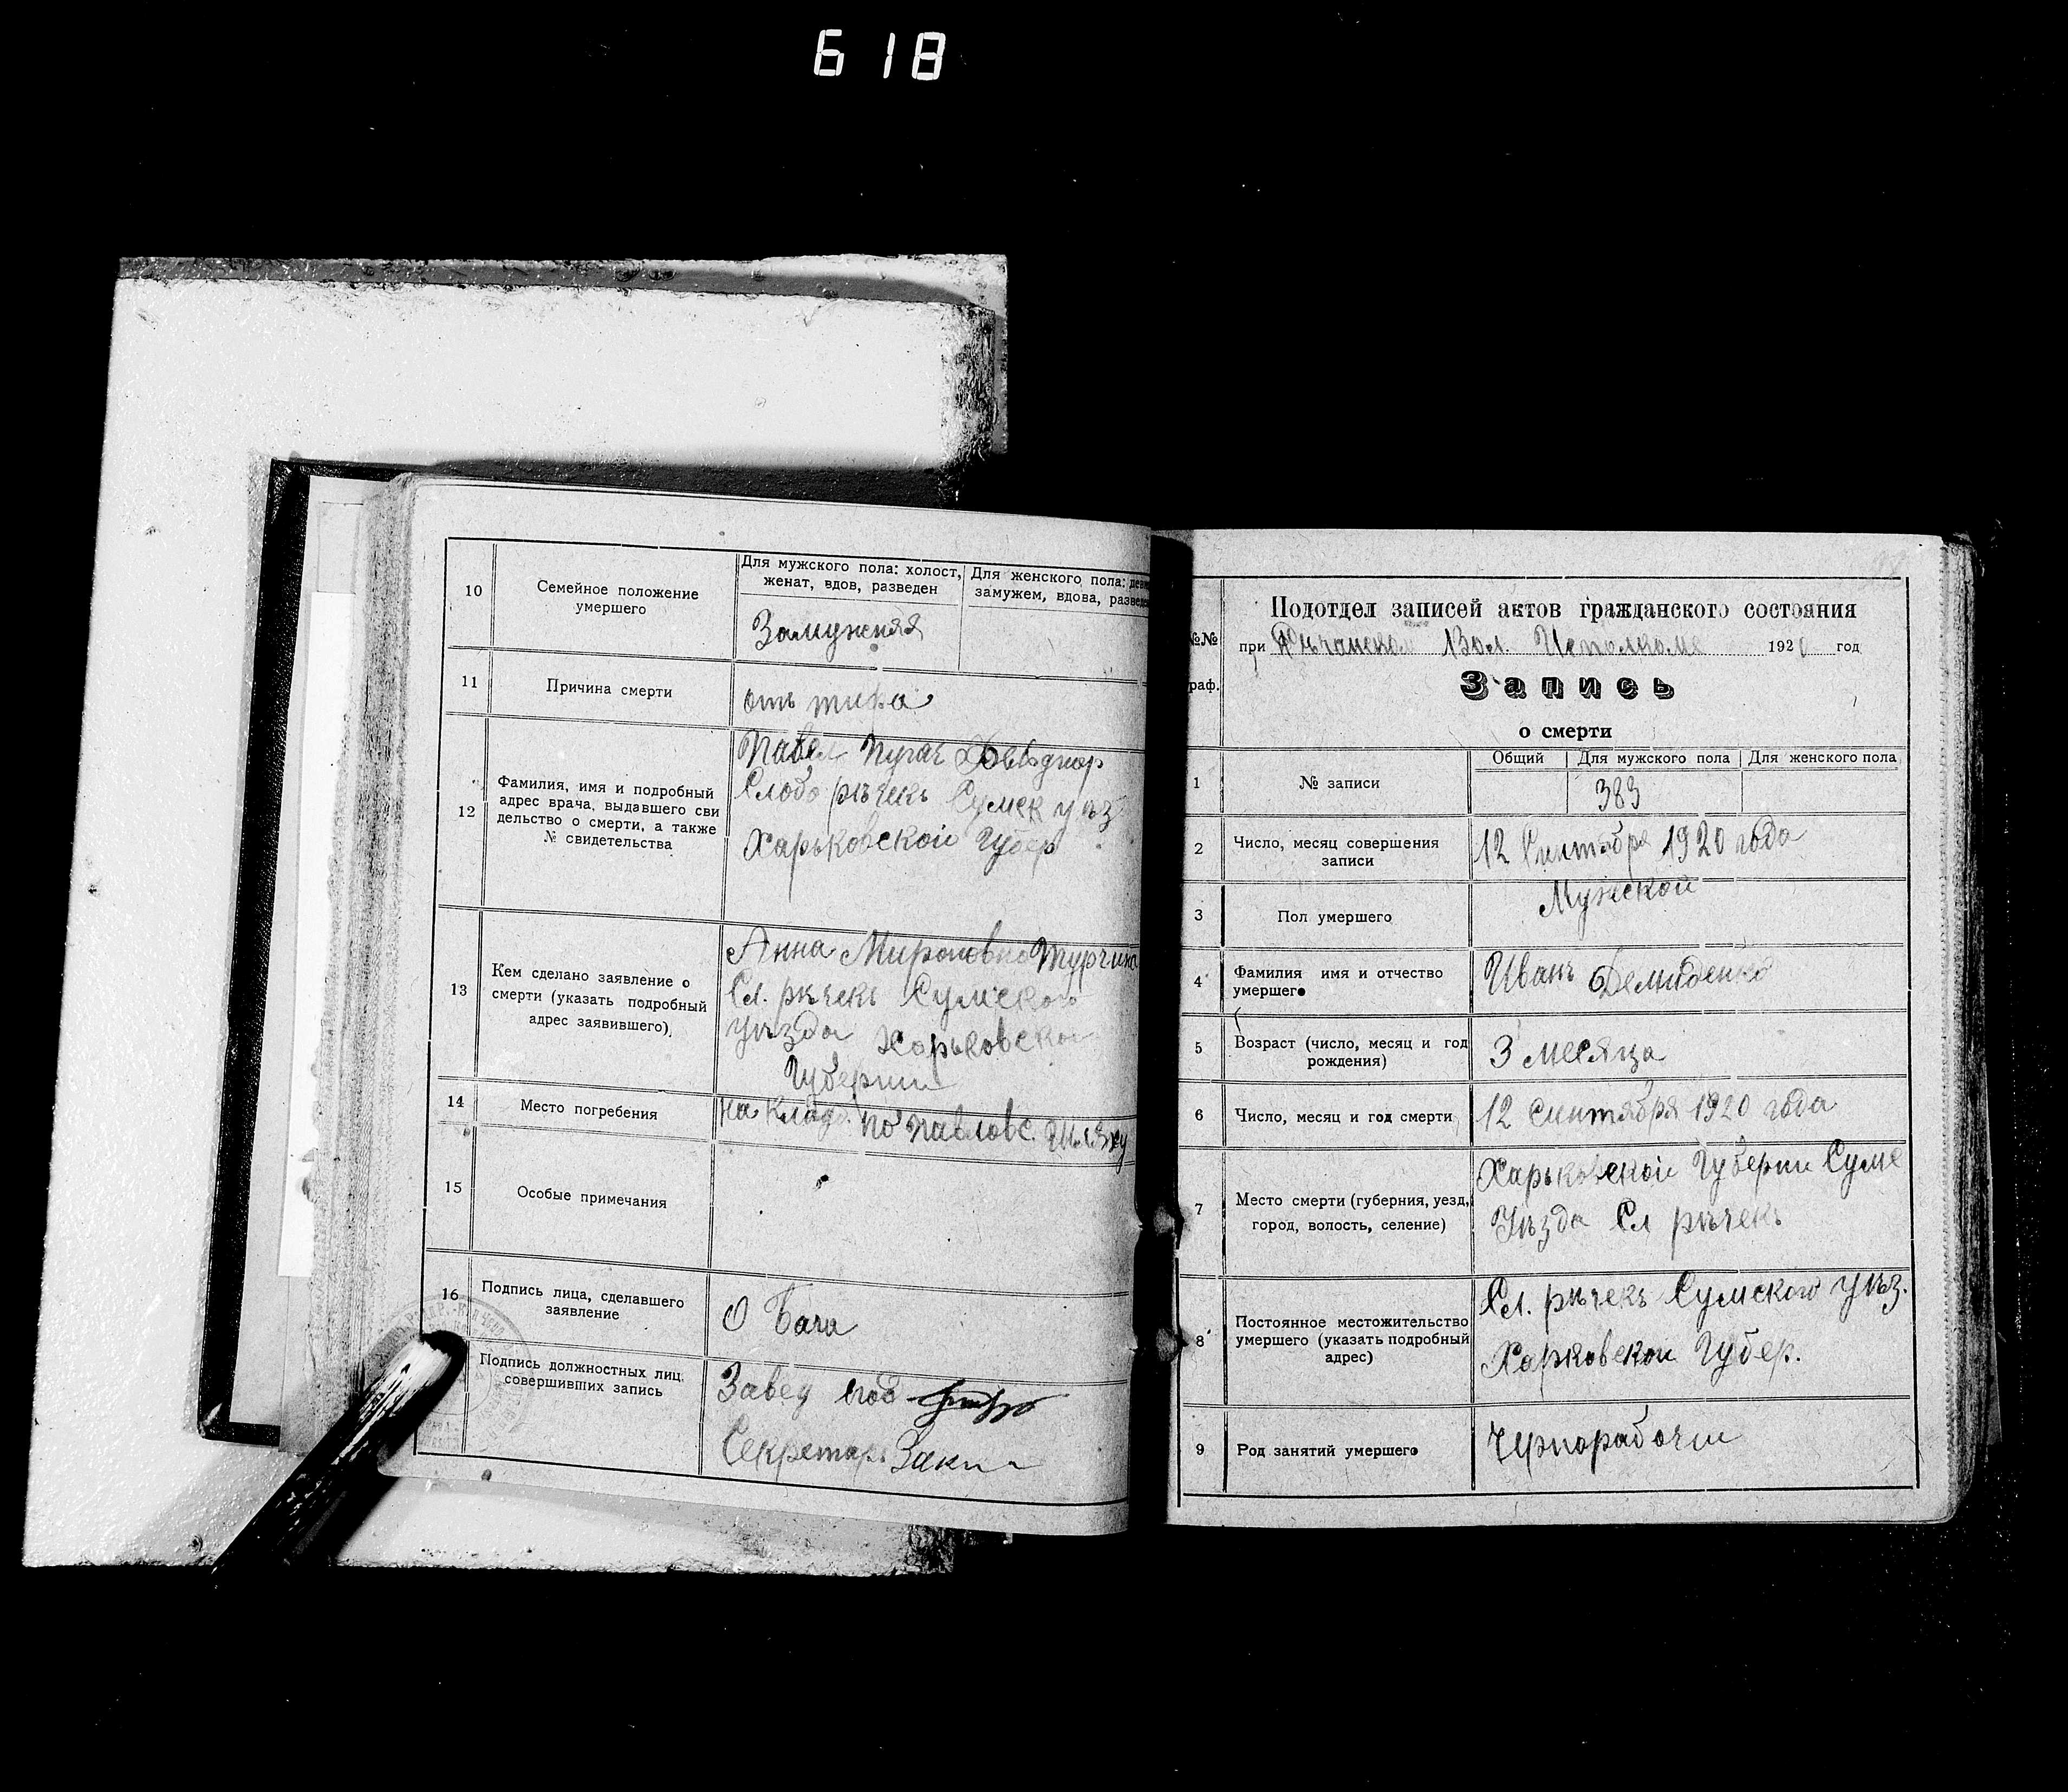 618
10
Семейное положение
умершего
Для мужского пола: холост,
женат, вдов, разведен
Для женского пола:
замужем, вдова,
Замужняя
11
Причина смерти
отъ тифа
12
Фамилия, имя и подробный
адрес врача, выдавшего сви
дельство о смерти, а также
№ свидетельства
Павел Пугач
Слобо рѣчекъ Сумск уѣз
Харьковской Губер
13
Кем сделано заявление о
смерти (указать подробный
адрес заявившего),
Анна Мироновна Турчина
Сл. рѣчекъ Сумского
уѣзда Харьковской
Губернии
14
Место погребения
на клад. по павловс. шляху
15
Особые примечания
16
Подпись лица, сделавшего
заявление
Подпись должностных лиц,
совершивших запись
Завед под
Секретарь
№№
граф.
Подотдел записей актов гражданского состояния
при Вол. Исполкоме 1920 год
Запись
о смерти
1
№ записи
Общий
Для мужского пола
Для женского пола
383
2
Число, месяц совершения
записи
12 Сентября 1920 года
3
Пол умершего
Мужской
4
Фамилия имя и отчество
умершего
Иванъ Демиденко
5
Возраст (число, месяц и год
рождения)
3 месяца
6
Число, месяц и год смерти
12 Сентября 1920 года
7
Место смерти (губерния, уезд,
город, волость, селение)
Харьковской Губерни Сумс
Уѣзда Сл рѣчекъ
8
Постоянное местожительство
умершего (указать подробный
адрес)
Сл. рѣчекъ Сумского уѣз.
Харковской Губер.
9
Род занятий умершего
Чернорабочии